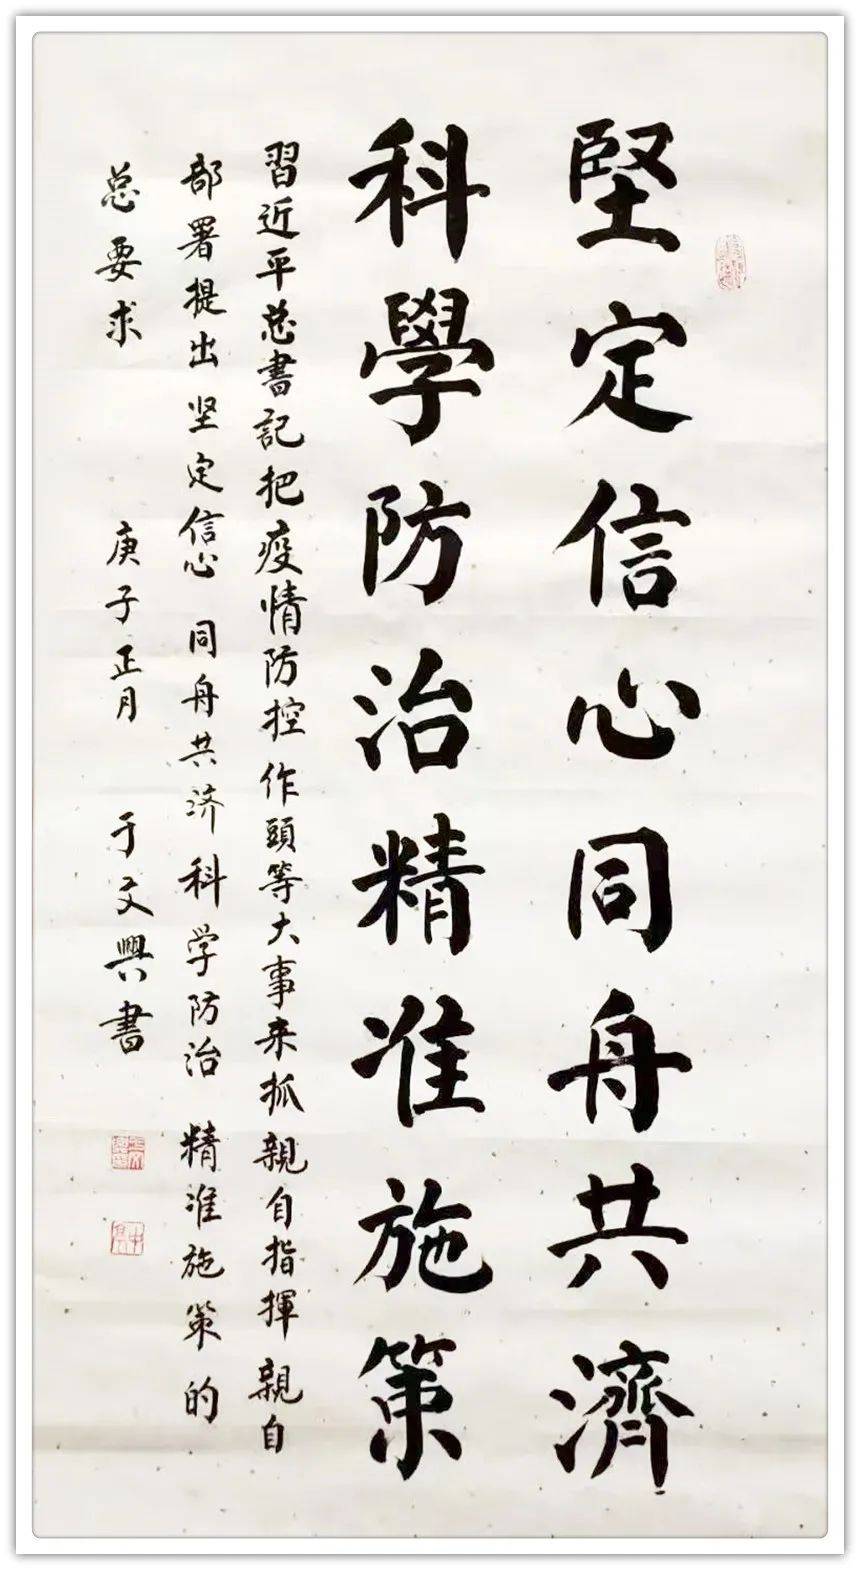 堅定信心同舟共濟
科學防治精准施策
習近平总書記把疫情防控作頭等大事来抓親自指揮親自
部署提出坚定信心同舟共济科学防治精准施策的
总要求 庚子正月 于文興書